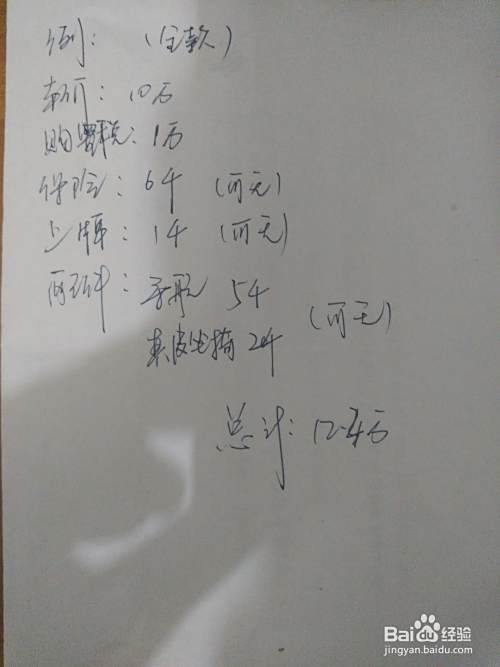 例：（全款）
车价：10万
购置税：1万
保险：6千（可无）
上牌：1千（可无）
导航 5千
真皮坐椅 2千（可无）
总计：12.4万
Baidu 经验
jingyan.baidu.com